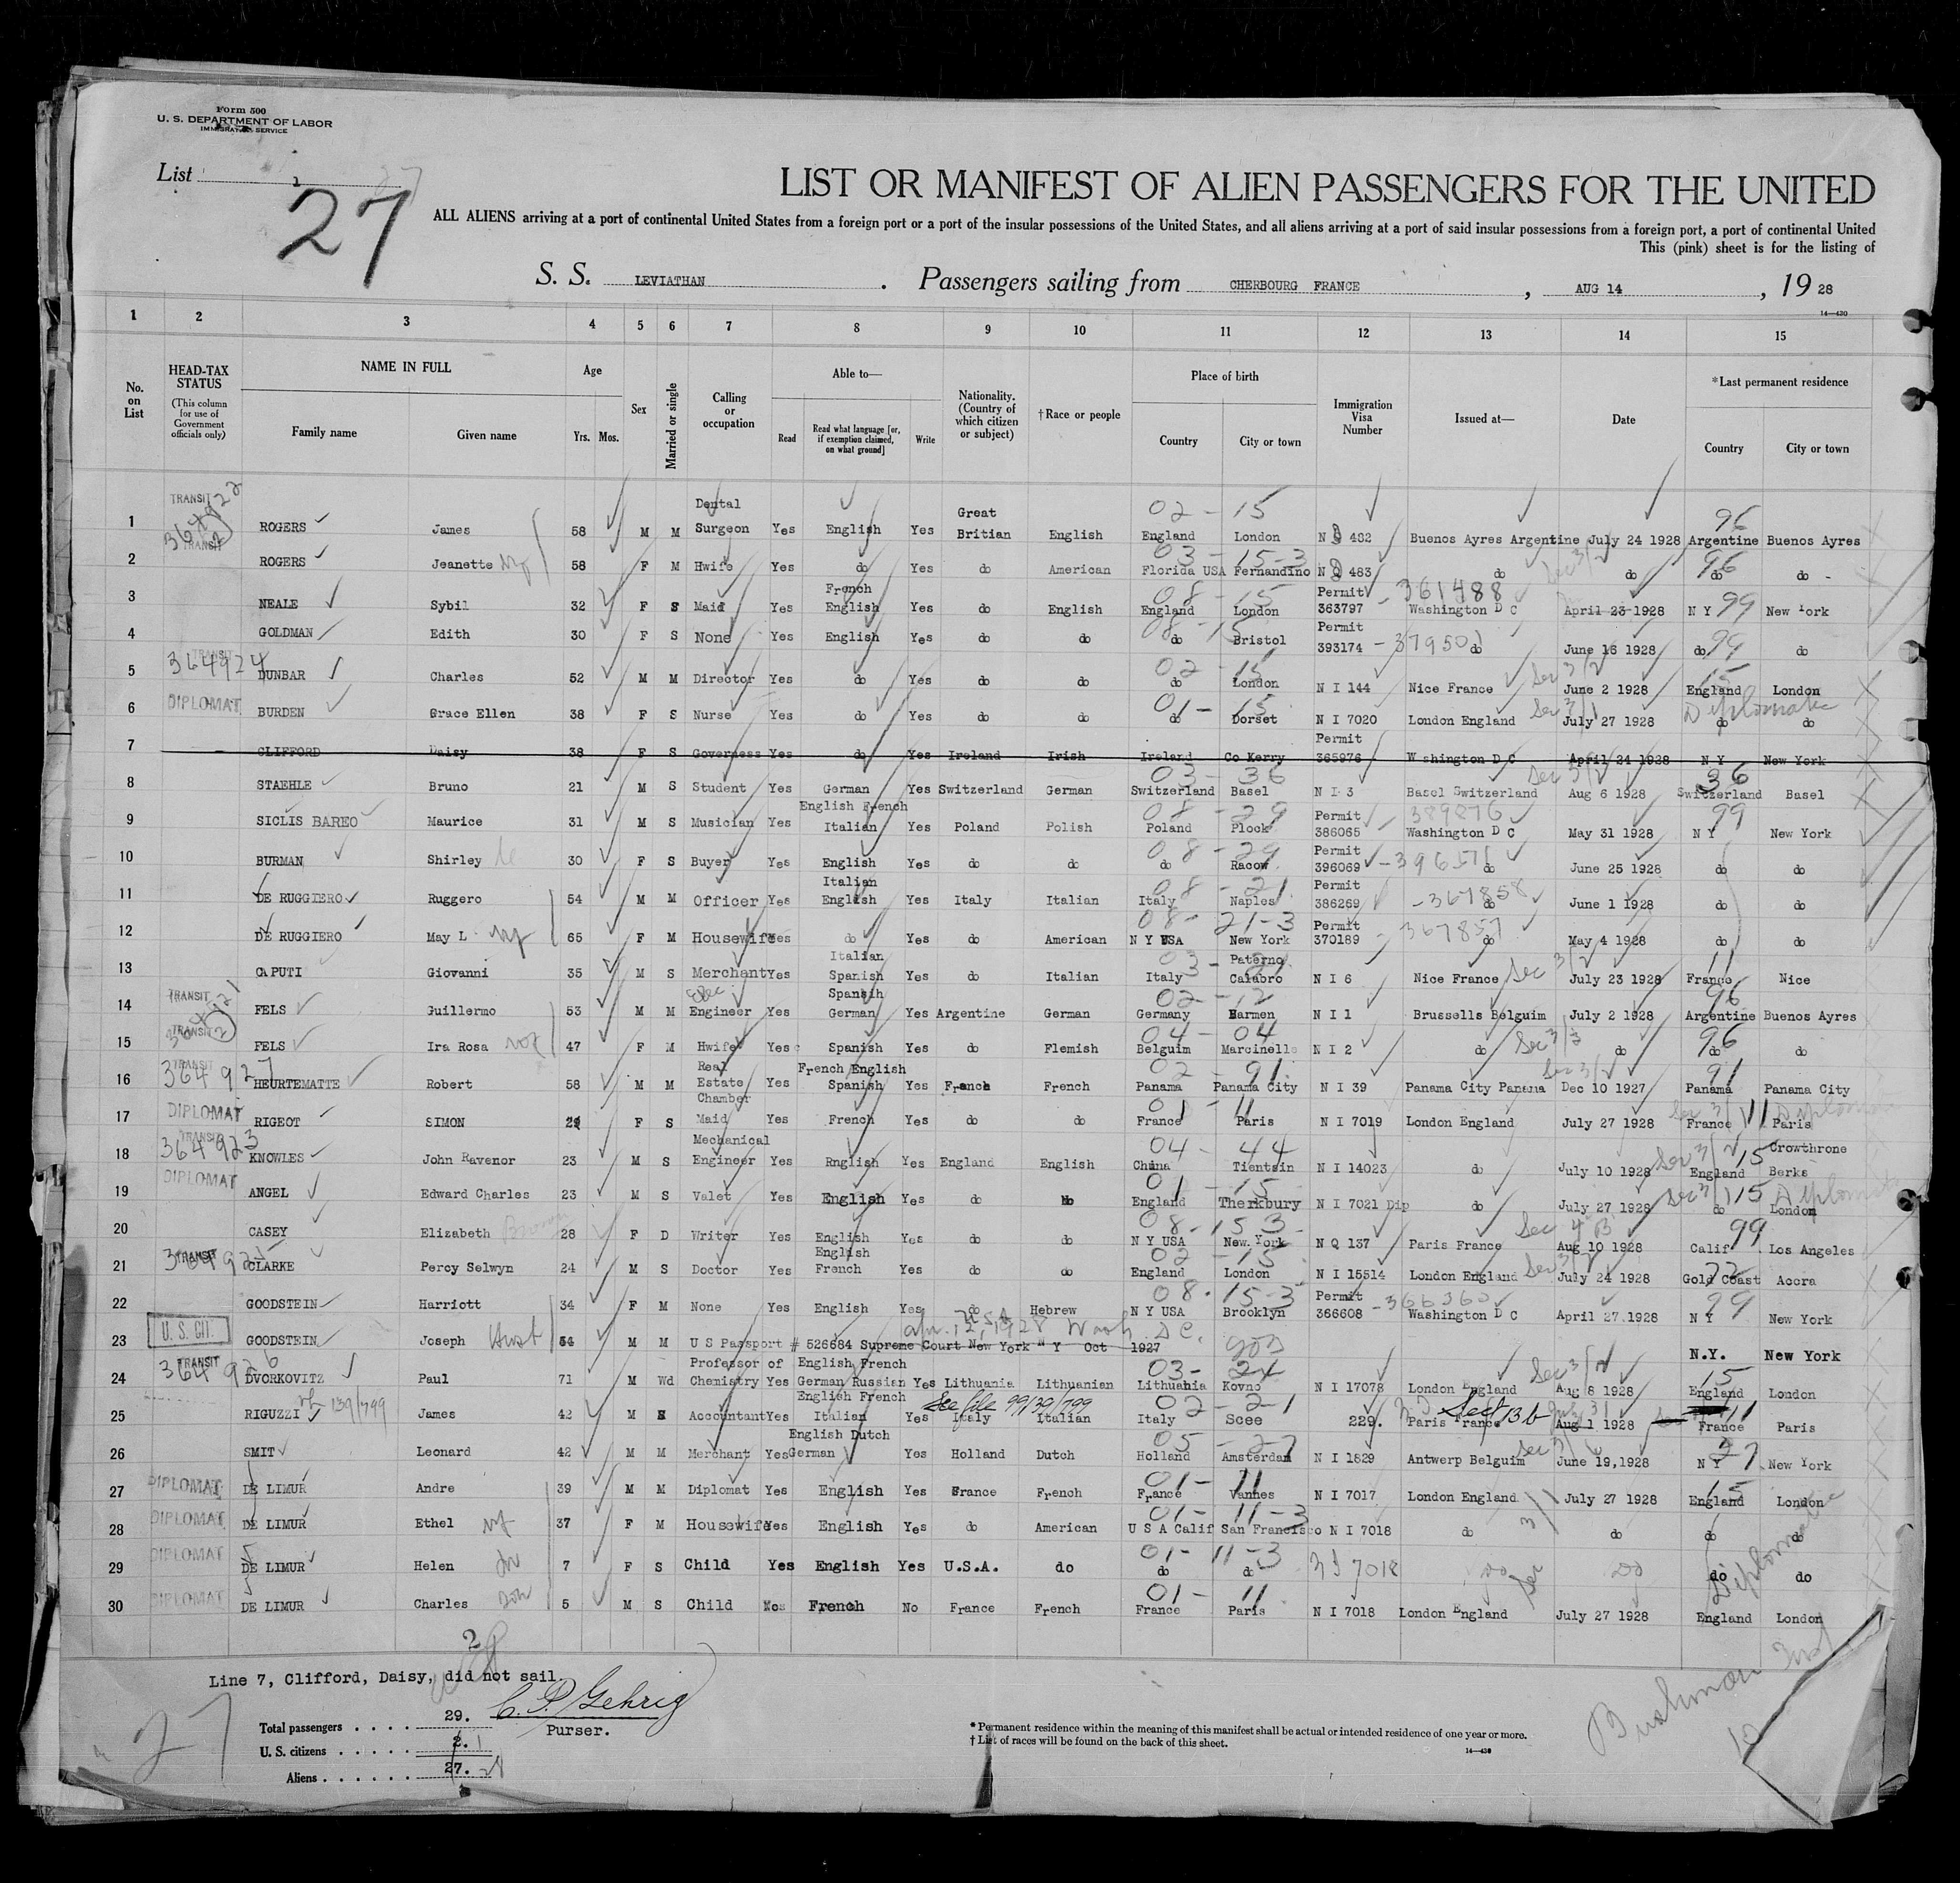 Form 500
U. S. DEPARTMENT OF LABOR
IMMIGRATION SERVICE
List 2 27
27
LIST OR MANIFEST OF ALIEN PASSENGERS FOR THE UNITED
ALL ALIENS arriving at a port of continental United States from a foreign port or a port of the insular possessions of the United States, and all aliens arriving at a port of said insular possessions from a foreign port, a port of continental United
This (pink) sheet is for the listing of
S. S. LEVIATHAN . Passengers sailing from CHERBOURG FRANCE , AUG 14 , 19 28
14—430
1 2 3 4 5 6 7 8 9 10 11 12 13 14 15
No. on List
HEAD-TAX STATUS (This column for use of Government officials only)
NAME IN FULL
Family name Given name
Age Yrs. Mos.
Sex
Married or single
Calling or occupation
Able to—
Read Read what language [or, if exemption claimed, on what ground] Write
Nationality. (Country of which citizen or subject)
†Race or people
Place of birth
Country City or town
Immigration Visa Number
Issued at—
Date
*Last permanent residence
Country City or town
1 TRANSIT 364922 ROGERS James 58 M M Dental Surgeon Yes English Yes Great Britian English England London 02-15 N 482 Buenos Ayres Argentine July 24 1928 Argentine Buenos Ayres 96
2 TRANSIT ROGERS Jeanette 58 F M Hwife Yes do Yes do American Florida USA Fernandino 03-15-3 N 483 do do do do 96
3 NEALE Sybil 32 F S Maid Yes French English Yes do English England London 08-15 Permit 363797 - 361488 Washington D C April 23 1928 N Y 99 New York
4 GOLDMAN Edith 30 F S None Yes English Yes do do do Bristol 08-15 Permit 393174 - 379501 do June 16 1928 do 99 do
5 TRANSIT 364924 DUNBAR Charles 52 M M Director Yes do Yes do do do London 02-15 N I 144 Nice France Sec 3/2 June 2 1928 England 15 London
6 DIPLOMAT BURDEN Grace Ellen 38 F S Nurse Yes do Yes do do do Dorset 01-15 N I 7020 London England Sec 3/1 July 27 1928 do do Diplomatic
7 CLIFFORD Daisy 38 F S Governess Yes do Yes Ireland Irish Ireland Co Kerry Permit 365976 Washington D C April 24 1928 N Y New York
8 STAEHLE Bruno 21 M S Student Yes German Yes Switzerland German Switzerland Basel 03-36 N I 3 Basel Switzerland Sec 3/2 Aug 6 1928 Switzerland 36 Basel
9 SICLIS BAREO Maurice 31 M S Musician Yes English French Italian Yes Poland Polish Poland Plock 08-29 Permit 386065 389876 Washington D C May 31 1928 N Y 99 New York
10 BURMAN Shirley 30 F S Buyer Yes English Yes do do do Racow 08-29 Permit 396069 - 39651 do June 25 1928 do do
11 DE RUGGIERO Ruggero 54 M M Officer Yes Italian English Yes Italy Italian Italy Naples 08-21 Permit 386269 - 367858 do June 1 1928 do do
12 DE RUGGIERO May L 65 F M Housewife Yes do Yes do American N Y USA New York 08-21-3 Permit 370189 - 367857 do May 4 1928 do do
13 CAPUTI Giovanni 35 M S Merchant Yes Italian Spanish Yes do Italian Italy Paterno Calabro N I 6 Nice France Sec 3/2 July 23 1928 France 11 Nice
14 TRANSIT 364921 FELS Guillermo 53 M M Elec Engineer Yes Spansih German Yes Argentine German Germany Barmen 02-12 N I 1 Brussells Belguim July 2 1928 Argentine Buenos Ayres 96
15 TRANSIT FELS Ira Rosa 47 F M Hwife Yes Spanish Yes do Flemish Belguim Marcinelle 04-04 N I 2 do do do do 96
16 TRANSIT 364927 HEURTEMATTE Robert 58 M M Real Estate Yes French English Spanish Yes France French Panama Panama City 02-91 N I 39 Panama City Panama Sec 3/2 Dec 10 1927 Panama 91 Panama City
17 DIPLOMAT RIGEOT SIMON F S Chamber Maid Yes French Yes do do France Paris 01-11 N I 7019 London England July 27 1928 France Paris 11 Diplomatic
18 TRANSIT 364923 KNOWLES John Ravenor 23 M S Mechanical Engineer Yes Rnglish Yes England English China Tientsin 04-44 N I 14023 do July 10 1928 Sec 3/2 England 15 Crowthrone Berks
19 DIPLOMAT ANGEL Edward Charles 23 M S Valet Yes English Yes do England Therkbury 01-15 N I 7021 Dip do July 27 1928 Sec 3/1 15 do London
20 CASEY Elizabeth Brown 28 F D Writer Yes English Yes do do N Y USA New York 08-15-3 N Q 137 Paris France Sec 4 B Aug 10 1928 Calif 99 Los Angeles
21 TRANSIT 364925 CLARKE Percy Selwyn 24 M S Doctor Yes English French Yes do do England London 02-15 N I 15514 London England Sec 3/2 July 24 1928 Gold Coast 72 Accra
22 GOODSTEIN Harriott 34 F M None Yes English Yes do Hebrew N Y USA Brooklyn 08-15-3 Permit 366608 - 366360 Washington D C April 27 1928 N Y 99 New York
23 U. S. CIT. GOODSTEIN Joseph Husb 54 M M U S Passport # 526684 Supreme Court New York N Y Oct 1927 USA Apr. 12, 1928 Wash D C. N.Y. New York
24 TRANSIT 364926 DVORKOVITZ Paul 71 M Wd Professor of Chemistry Yes English French German Russian Yes Lithuania Lithuanian Lithuania Kovno 03-24 N I 17078 London England Sec 3/2 Aug 8 1928 England 15 London
25 RIGUZZI 139/799 James 42 M Accountant Yes English French Italian Yes See file 99/39/799 Italy Italian Italy Scee 02-21 229. Paris France Sect 13 b Aug 1 1928 France 11 Paris
26 SMIT Leonard 42 M M Merchant Yes English Dutch German Yes Holland Dutch Holland Amsterdam 05-27 N I 1829 Antwerp Belguim June 19,1928 N Y 27 New York
27 DIPLOMAT DE LIMUR Andre 39 M M Diplomat Yes English Yes France French France Vannes 01-11 N I 7017 London England July 27 1928 England 15 London
28 DIPLOMAT DE LIMUR Ethel 37 F M Housewife Yes English Yes do American U S A Calif San Francisco 01-11-3 N I 7018 do do do do
29 DIPLOMAT DE LIMUR Helen 7 F S Child Yes English Yes U.S.A. do do do 01-11-3 N I 7018 do do do do
30 DIPLOMAT DE LIMUR Charles son 5 M S Child French No France French France Paris 01-11 N I 7018 London England July 27 1928 England London
Diplomatic
Line 7, Clifford, Daisy, did not sail.
28
C. P. Gehrig
Purser.
27
Total passengers . . . . 29.
U. S. citizens . . . . . 2. 1
Aliens . . . . . . 27. 28
* Permanent residence within the meaning of this manifest shall be actual or intended residence of one year or more.
† List of races will be found on the back of this sheet.
14—430
Bushman